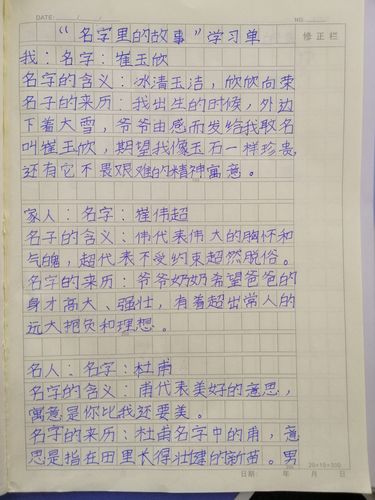 DATE: / / NO.
"名字里的故事"学习单
修正栏
我：名字：崔玉欣
名字的含义：冰清玉洁，欣欣向荣
名子的来历：我出生的时候，外边
下着大雪，爷爷由感而发给我取名
叫崔玉欣，期望我像玉石一样珍贵，
还有它不畏艰难的精神寓意。
家人：名字：崔伟超
名子的含义：伟代表伟大的胸怀和
气魄，超代表不受约束超然脱俗。
名字的来历：爷爷奶奶希望爸爸的
身才高大、强壮，有着超出常人的
远大抱负和理想。
名人：名字：杜甫
名字的含义：甫代表美好的意思，
寓意是你比我还要美。
名字的来历：杜甫名字中的甫，意
思是指在田里长得壮健的新苗。男
20×15=300
日期： 年 月 日